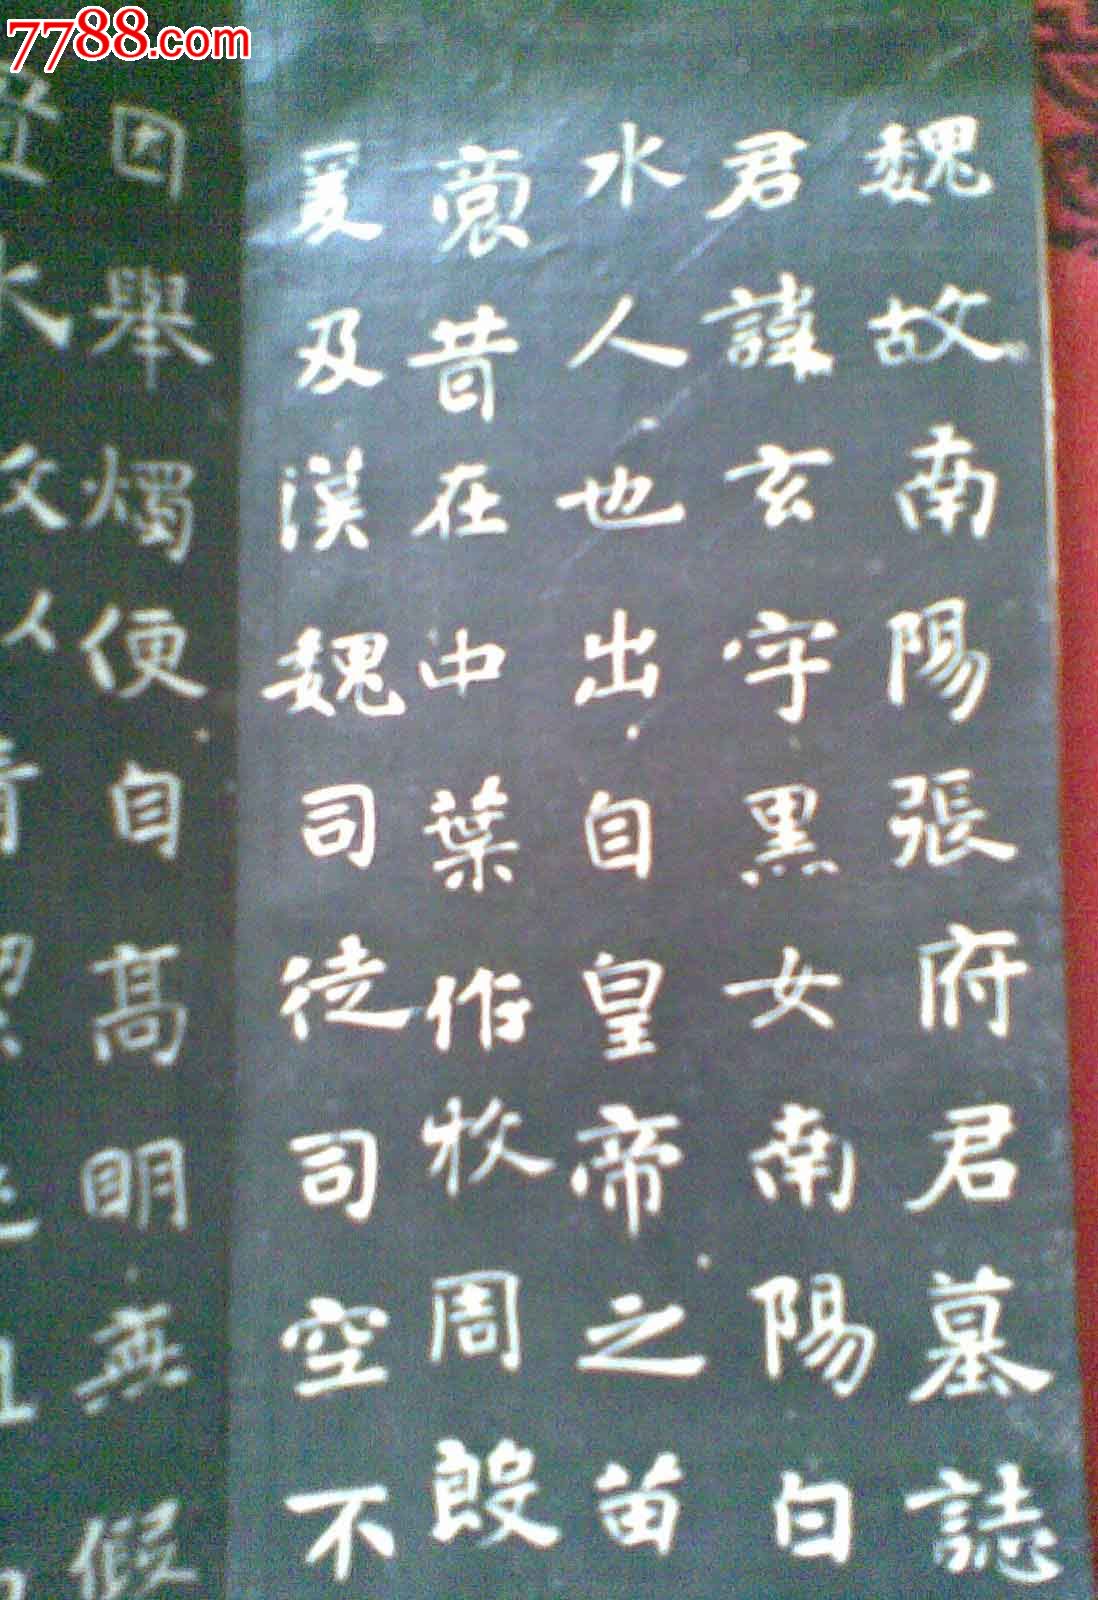 7788.com
魏故南陽張府君墓誌
君諱玄字黑女南陽白
水人也出自皇帝之苗
裔昔在中葉作牧周殷
爰及漢魏司徒司空不
因舉燭便自高明無假